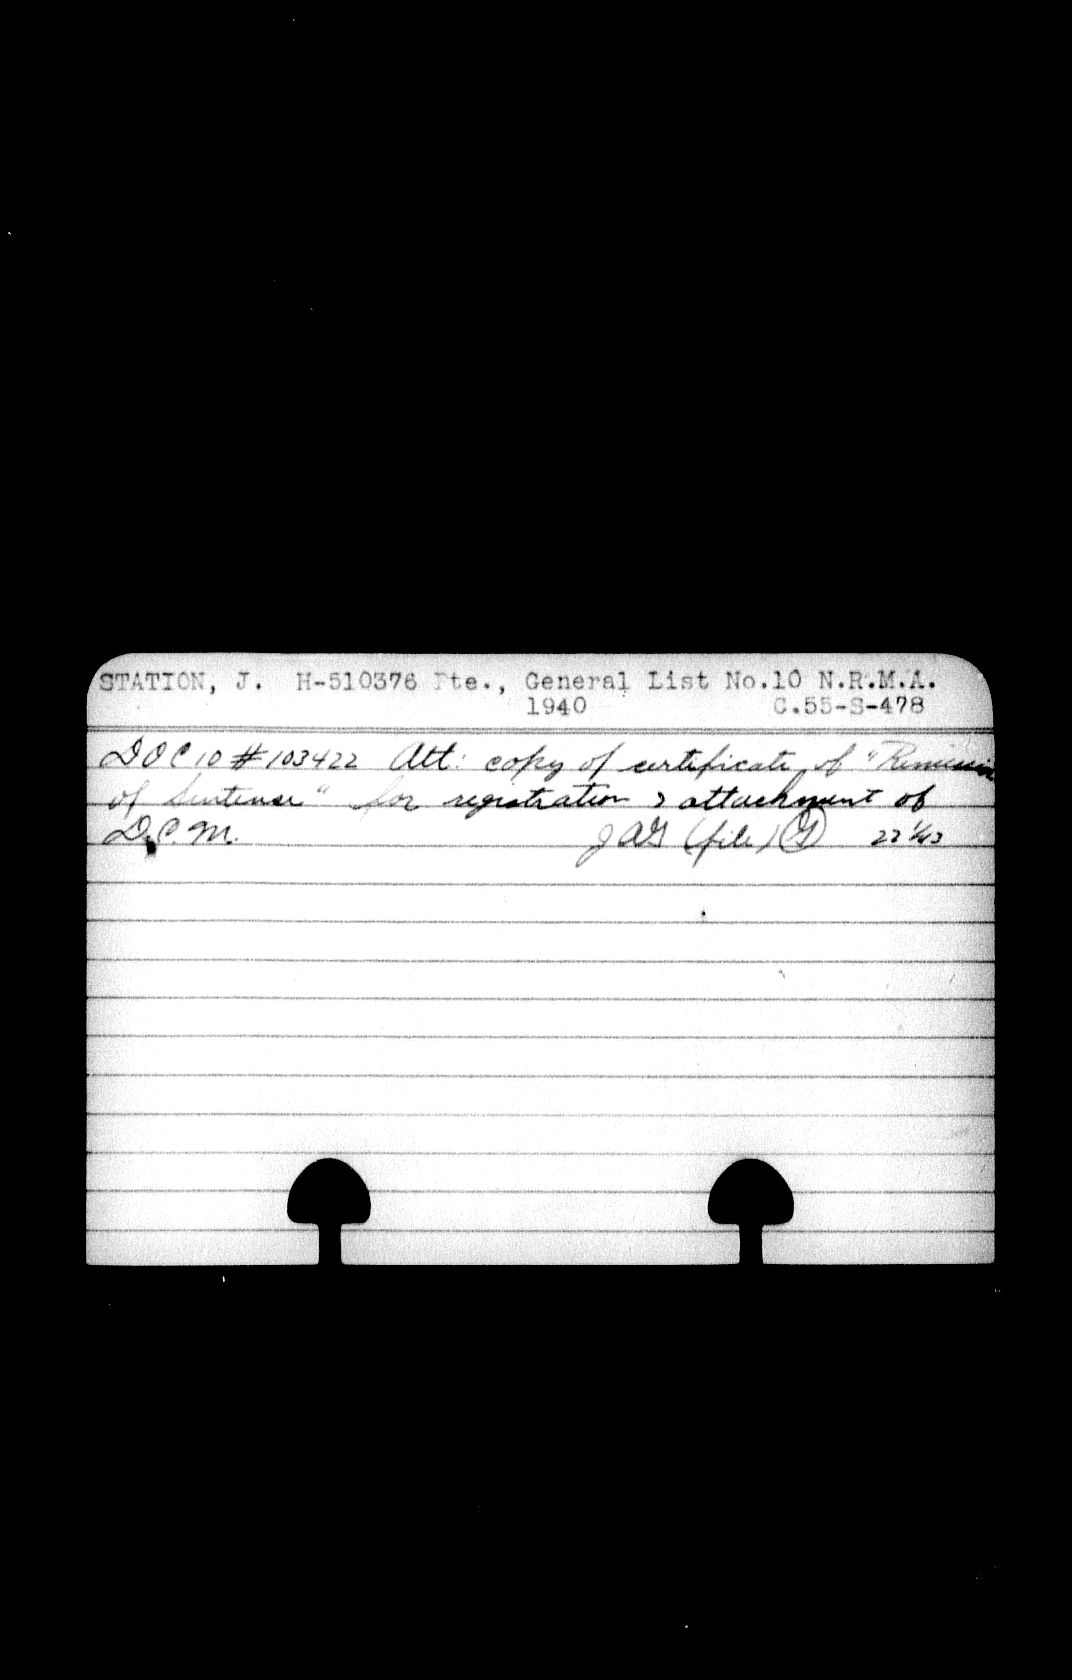 STATION, J. H-510376 Pte., General List No.10 N.R.M.A.
1940 C.55-S-478
DOC 10 # 103422 Att: copy of certificate of "Remission
of Sentense" for registration & attachment of
D.C.M. JAG (file)